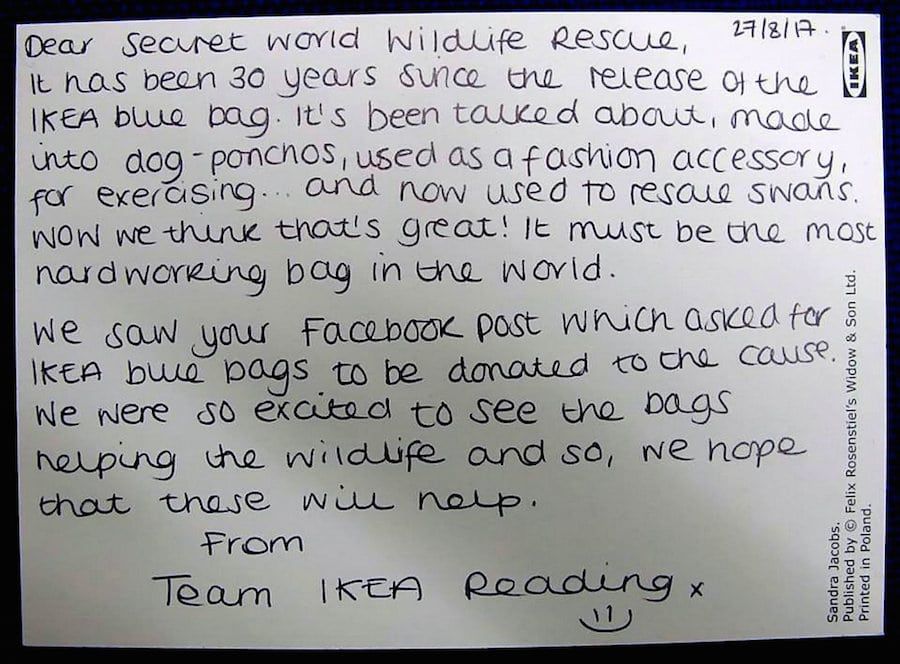 27/8/17.
Dear Secret World Wildlife Rescue,
It has been 30 years since the release of the
IKEA blue bag. It's been talked about, made
into dog-ponchos, used as a fashion accessory,
for exercising... and now used to rescue swans.
Now we think that's great! It must be the most
hardworking bag in the world.
We saw your Facebook post which asked for
IKEA blue bags to be donated to the cause.
We were so excited to see the bags
helping the wildlife and so, we hope
that these will help.
From
Team IKEA Reading x
IKEA
Sandra Jacobs.
Published by © Felix Rosenstiel's Widow & Son Ltd.
Printed in Poland.